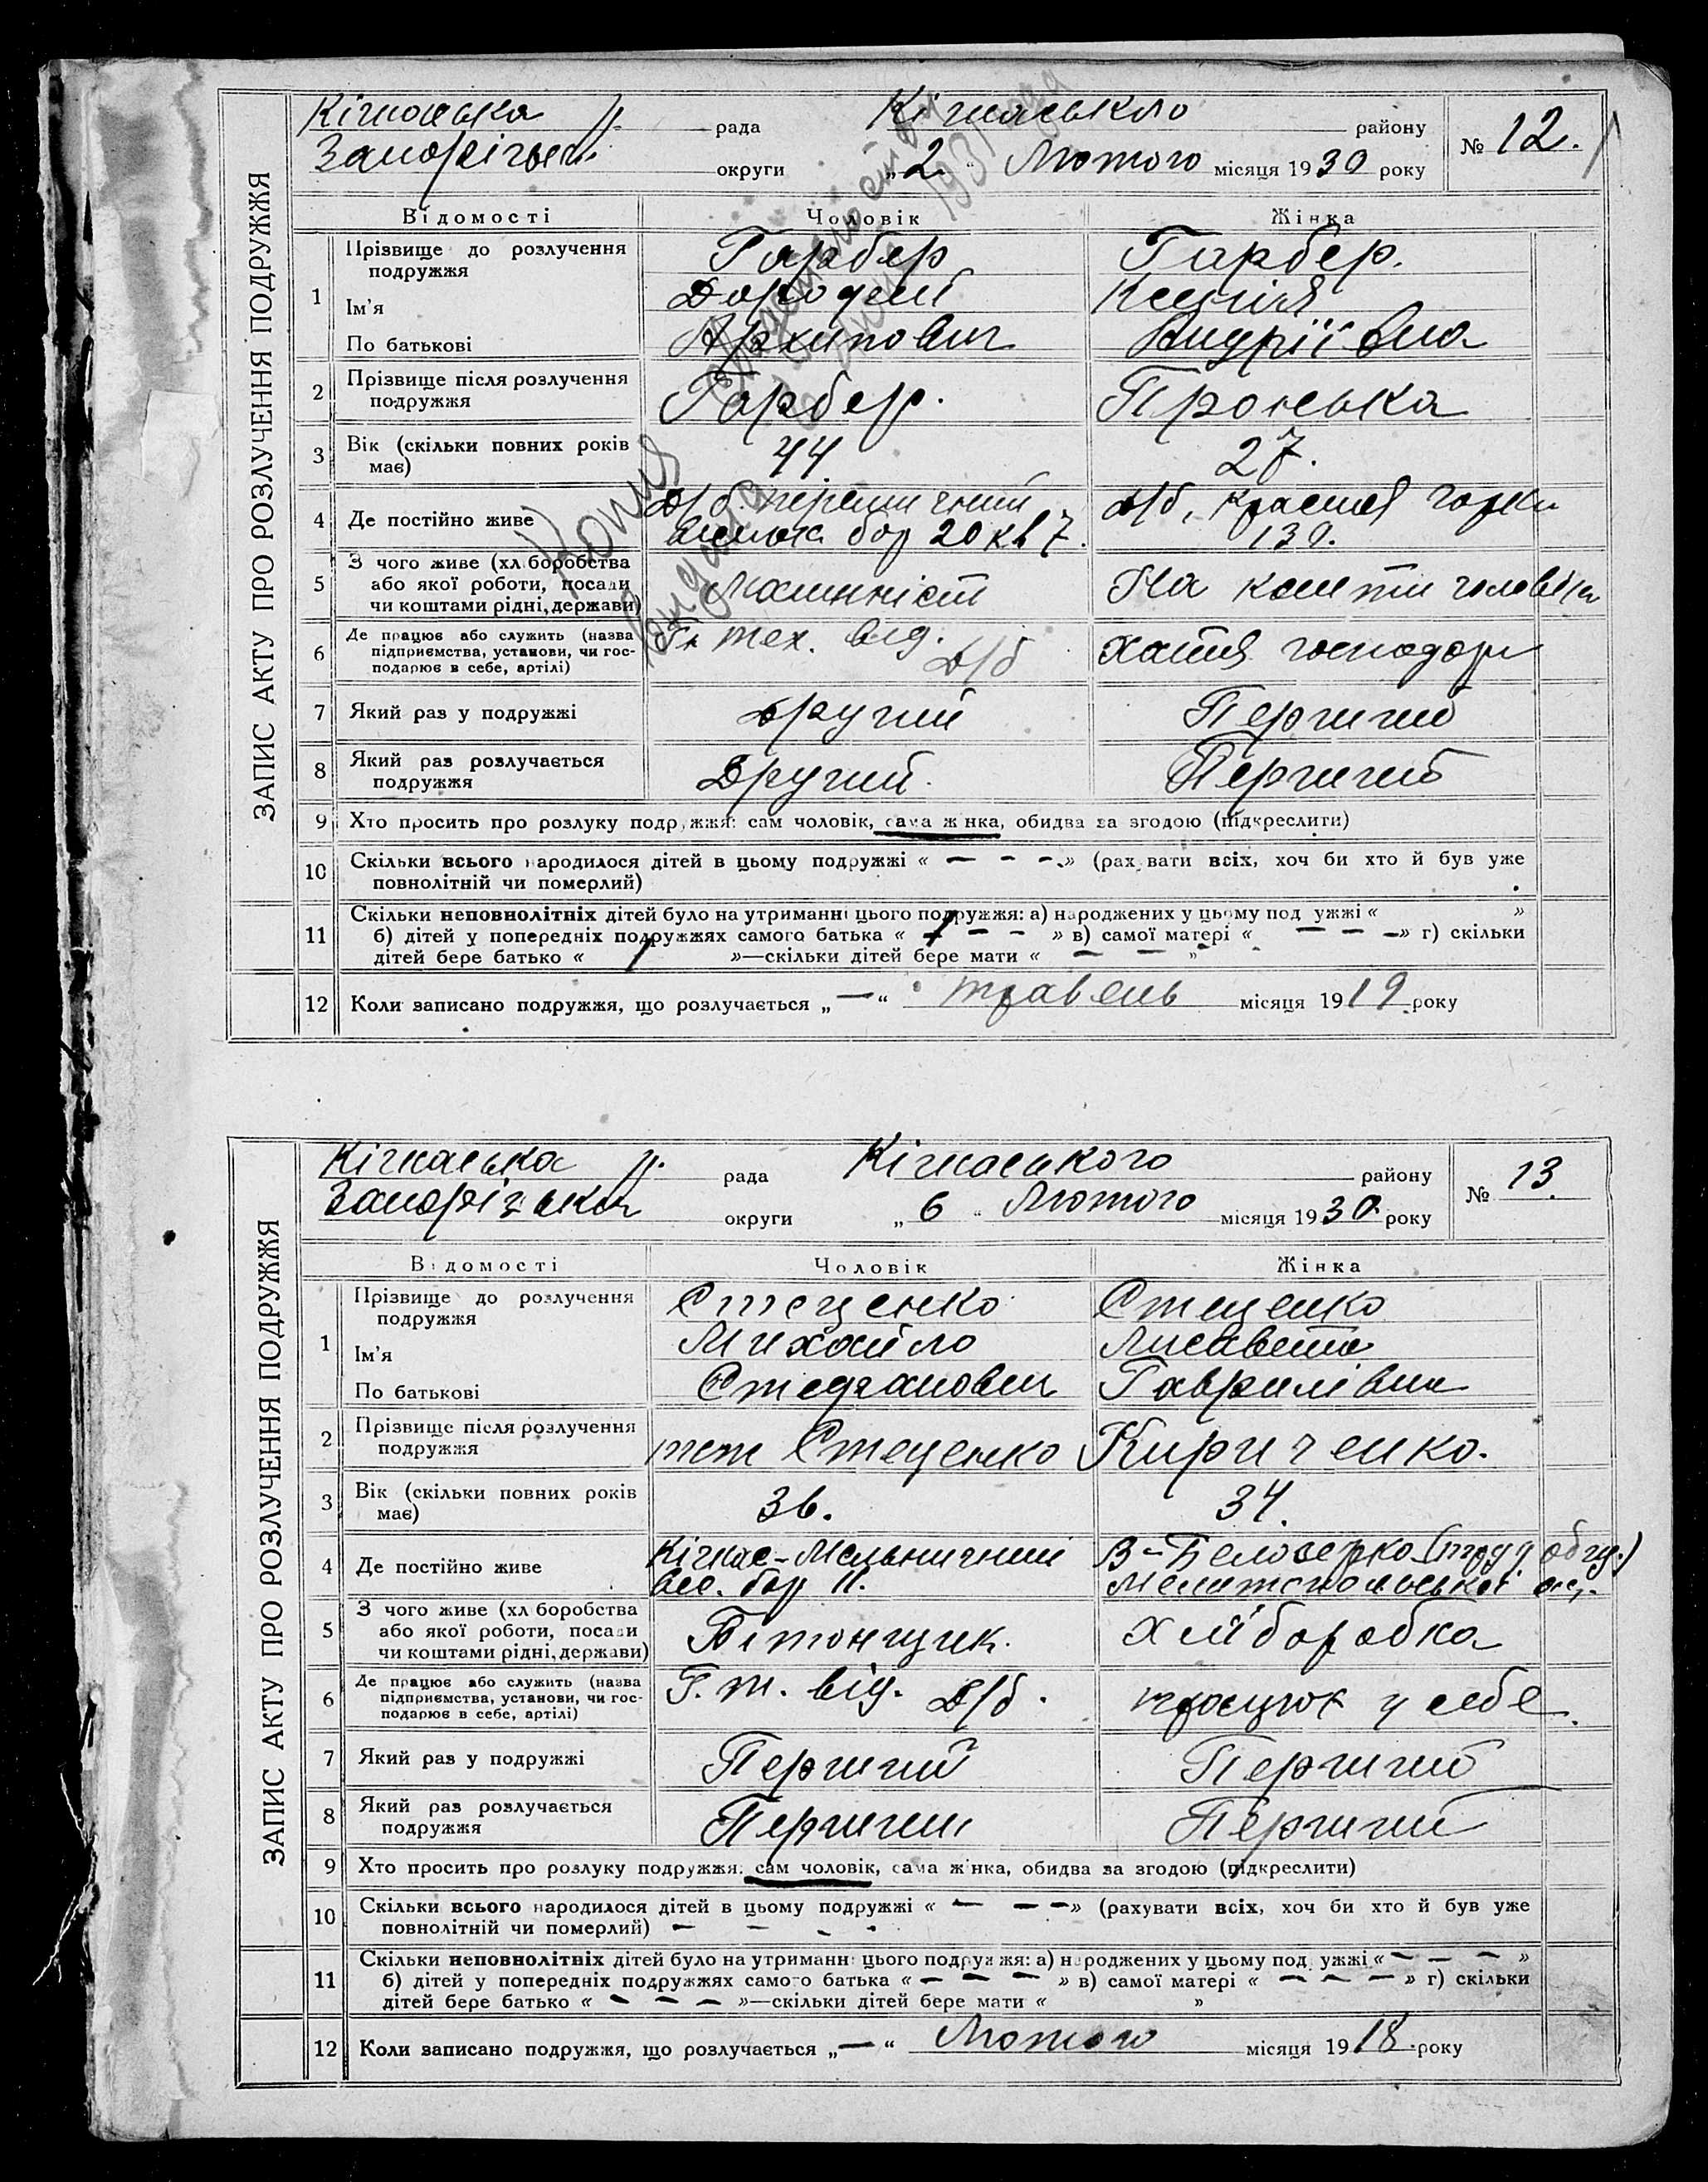 ЗАПИС АКТУ ПРО РОЗЛУЧЕННЯ ПОДРУЖЖЯ
Кічкаська р. рада Кічкаського району № 12.
округи „2“ Лютого місяця 1930 року
Відомості Чоловік Жінка
1 Прізвище до розлучення подружжя Гарбер Гарбер.
Ім'я Ксенія
По батькові Архипович Андріївна
2 Прізвище після розлучення подружжя Гарбер. Пронська
3 Вік (скільки повних років має) 44 27.
4 Де постійно живе Д/б. Д/б,
бар 20 кв 7. 130.
5 З чого живе (хліборобства або якої роботи, посади чи коштами рідні, держави) Машиніст На кошти чоловіка
6 Де працює або служить (назва підприємства, установи, чи господарює в себе, артілі) тех. від. Д/б Хатня господарк
7 Який раз у подружжі Другий Перший
8 Який раз розлучається подружжя Другий. Перший
9 Хто просить про розлуку подружжя: сам чоловік, сама жінка, обидва за згодою (підкреслити)
10 Скільки всього народилося дітей в цьому подружжі « — – –.» (рахувати всіх, хоч би хто й був уже
повнолітній чи померлий)
11 Скільки неповнолітніх дітей було на утриманні цього подружжя: а) народжених у цьому подружжі « »
б) дітей у попередніх подружжях самого батька « 1 – – » в) самої матері « – – –» г) скільки
дітей бере батько « 1 »—скільки дітей бере мати « – – »
12 Коли записано подружжя, що розлучається „—“ травень місяця 1919 року
Копия
1931 года
ЗАПИС АКТУ ПРО РОЗЛУЧЕННЯ ПОДРУЖЖЯ
Кічкаська р. рада Кічкаського району № 13.
Запорізька округи „6“ Лютого місяця 1930 року
Відомості Чоловік Жінка
1 Прізвище до розлучення подружжя Стеценко Стеценко
Ім'я Михайло Лисавета
По батькові Стефанович Гаврилівна
2 Прізвище після розлучення подружжя Стеценко Кириченко.
3 Вік (скільки повних років має) 36. 34.
4 Де постійно живе Кічкас-Мельничний В-Белозерка
бар 11. Мелитопольської ок.
5 З чого живе (хліборобства або якої роботи, посади чи коштами рідні, держави) Бетонщик. Хліборобка
6 Де працює або служить (назва підприємства, установи, чи господарює в себе, артілі) Г. т. від. Д/б. працює у себе.
7 Який раз у подружжі Перший Перший
8 Який раз розлучається подружжя Перший Перший
9 Хто просить про розлуку подружжя: сам чоловік, сама жінка, обидва за згодою (підкреслити)
10 Скільки всього народилося дітей в цьому подружжі « — – –» (рахувати всіх, хоч би хто й був уже
повнолітній чи померлий) – – – –
11 Скільки неповнолітніх дітей було на утриманні цього подружжя: а) народжених у цьому подружжі « – – – »
б) дітей у попередніх подружжях самого батька « – – – » в) самої матері « – – – » г) скільки
дітей бере батько « – – – »—скільки дітей бере мати « »
12 Коли записано подружжя, що розлучається „—“ Лютого місяця 1918 року